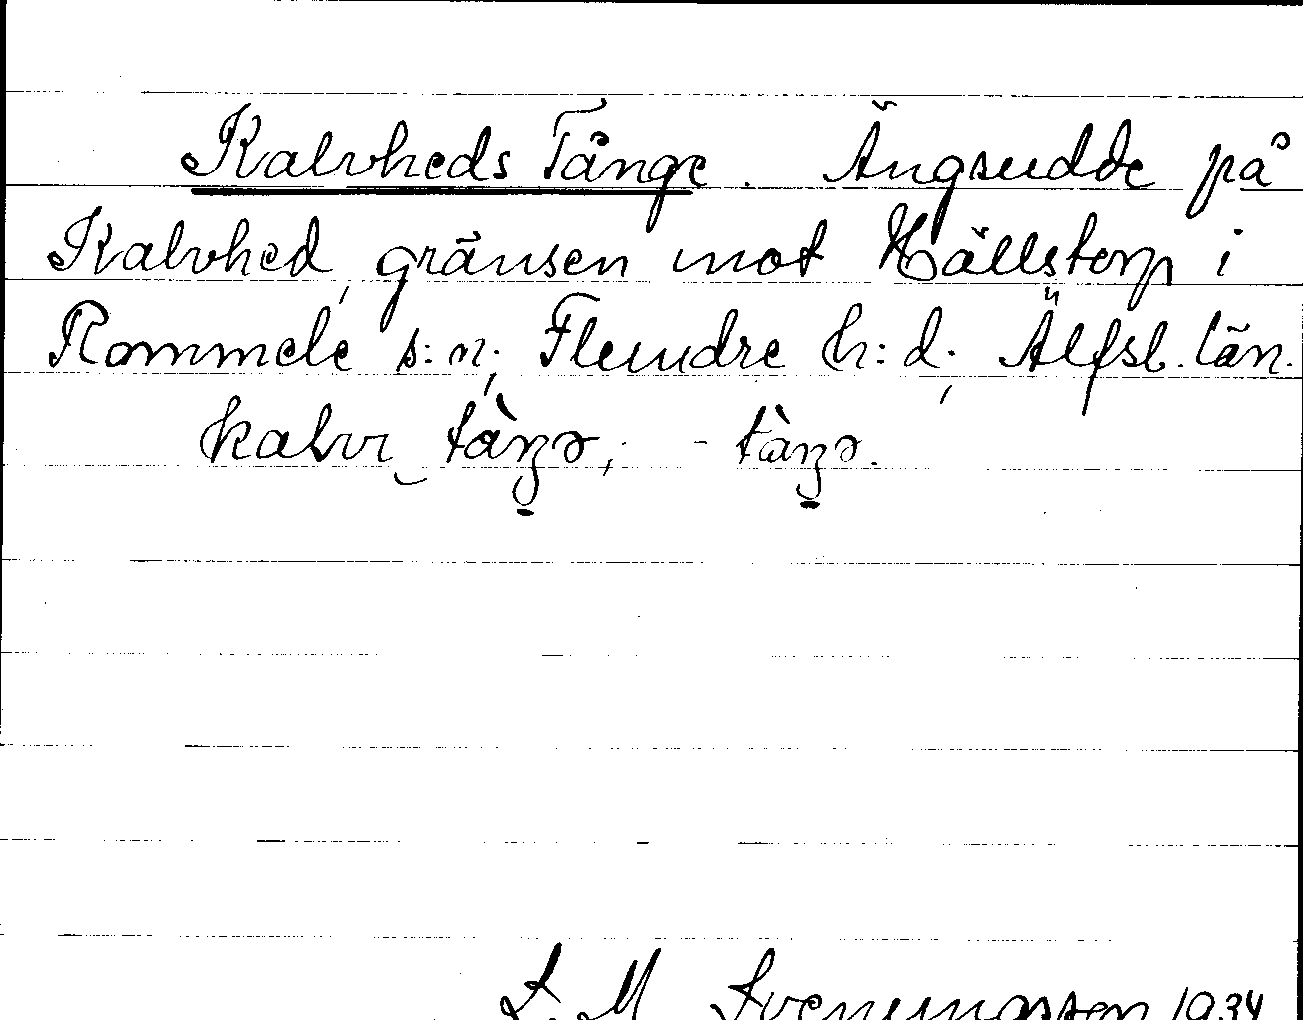 Kalvheds Tånge. Ängsudde på
Kalvhed, gränsen mot Hällstorp i
Rommele s:n; Flundre h:d; Älfsb. län.
kalvı tàŋə; - tàŋə.
S. M Svenningsson 1934